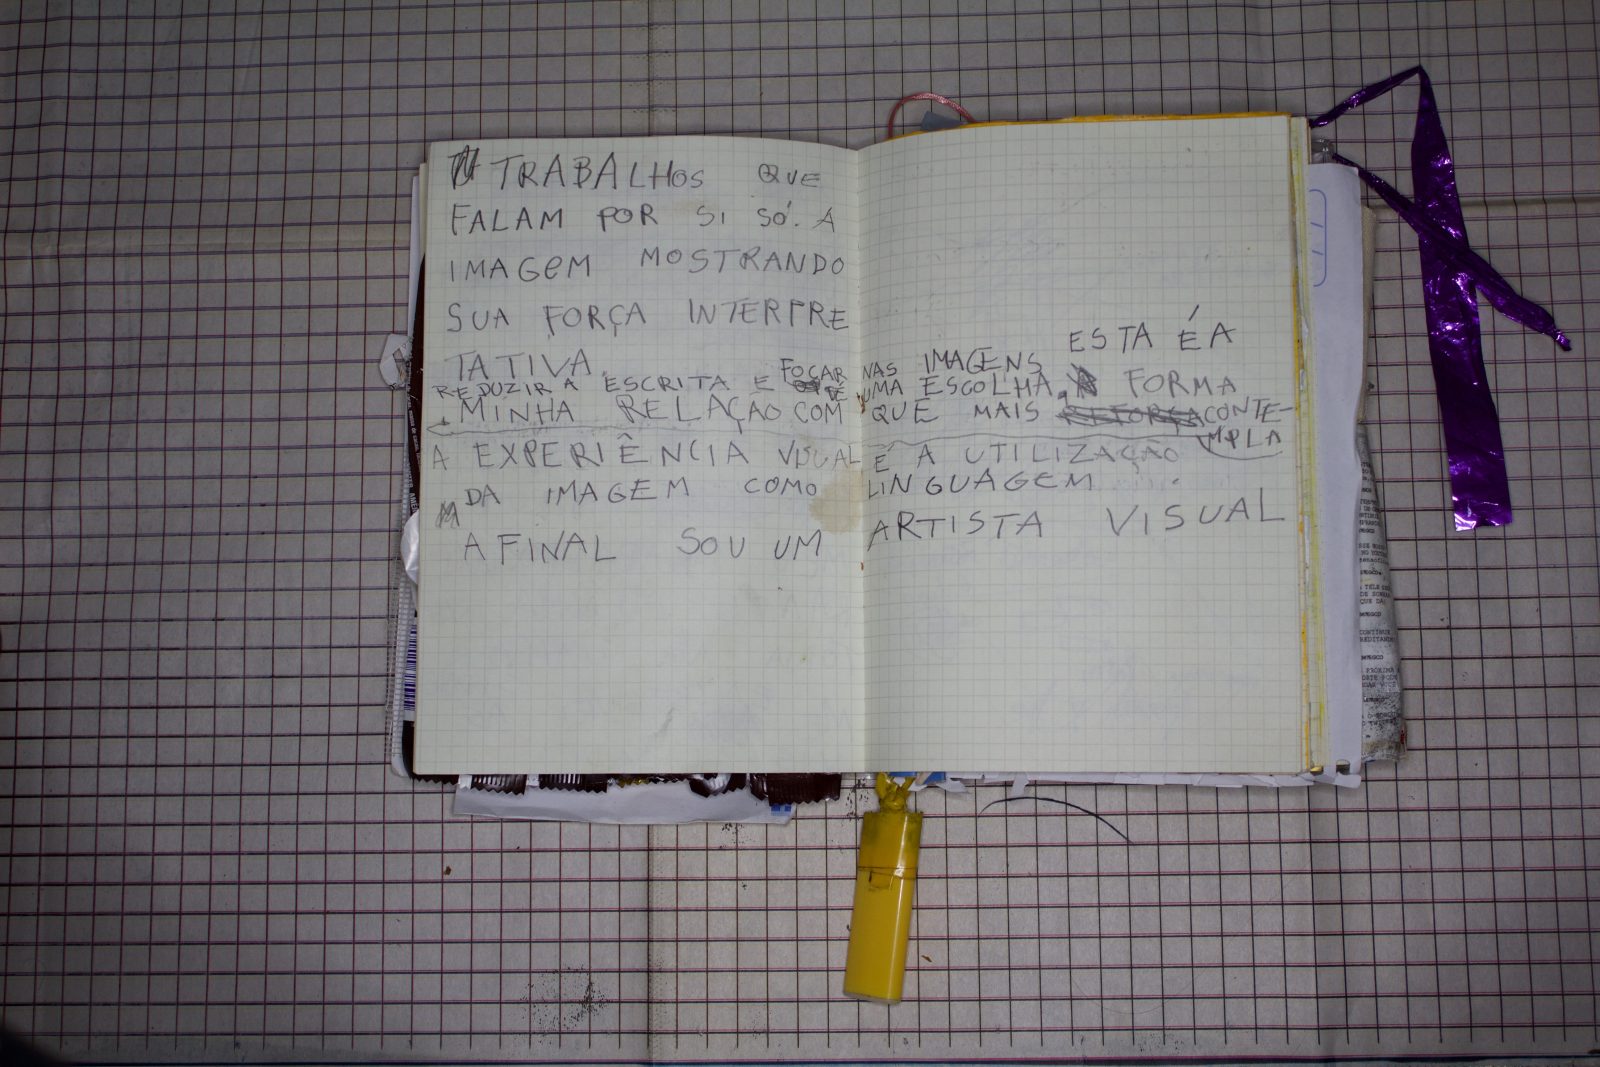 TRABALHOS QUE
FALAM POR SI SÓ. A
IMAGEM MOSTRANDO
SUA FORÇA INTERPRE
TATIVA.
REDUZIR A ESCRITA E FOCAR NAS IMAGENS
É UMA ESCOLHA. ESTA É A FORMA
QUE MAIS CONTE-
MPLA
MINHA RELAÇÃO COM
A EXPERIÊNCIA VISUAL É A UTILIZAÇÃO
DA IMAGEM COMO LINGUAGEM
AFINAL SOU UM ARTISTA VISUAL